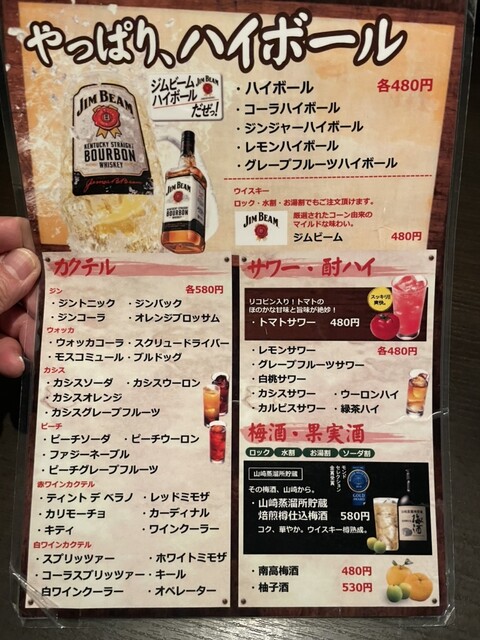 やっぱり、ハイボール
JIM BEAM
KENTUCKY STRAIGHT
BOURBON
WHISKEY
ジムビーム
ハイボール
だぜっ!
JIM BEAM
・ハイボール 各480円
・コーラハイボール
・ジンジャーハイボール
・レモンハイボール
・グレープフルーツハイボール
ウイスキー
ロック・水割・お湯割でもご注文頂けます。
JIM BEAM
厳選されたコーン由来の
マイルドな味わい。
ジムビーム 480円
カクテル
ジン 各580円
・ジントニック ・ジンバック
・ジンコーラ ・オレンジブロッサム
ウォッカ
・ウォッカコーラ ・スクリュードライバー
・モスコミュール ・ブルドッグ
カシス
・カシスソーダ ・カシスウーロン
・カシスオレンジ
・カシスグレープフルーツ
ピーチ
・ピーチソーダ ・ピーチウーロン
・ファジーネーブル
・ピーチグレープフルーツ
赤ワインカクテル
・ティント デ ベラノ ・レッドミモザ
・カリモーチョ ・カーディナル
・キティ ・ワインクーラー
白ワインカクテル
・スプリッツァー ・ホワイトミモザ
・コーラスプリッツァー ・キール
・白ワインクーラー ・オペレーター
サワー・酎ハイ
リコピン入り!トマトの
ほのかな甘味と旨味が絶妙!
・トマトサワー 480円
スッキリ!!
爽快。
・レモンサワー 各480円
・グレープフルーツサワー
・白桃サワー
・カシスサワー ・ウーロンハイ
・カルピスサワー ・緑茶ハイ
梅酒・果実酒
ロック 水割 お湯割 ソーダ割
山崎蒸溜所貯蔵
その梅酒、山崎から。
・山崎蒸溜所貯蔵
焙煎樽仕込梅酒 580円
コク、華やか。ウイスキー樽熟成。
モンド
セレクション
金賞受賞
・南高梅酒 480円
・柚子酒 530円